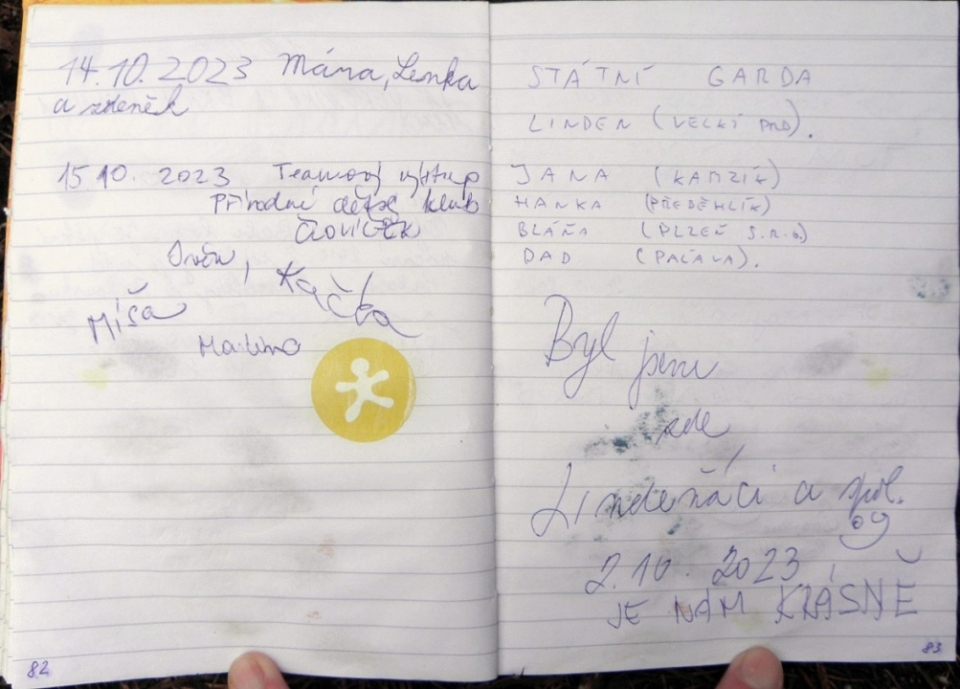 14.10.2023 Mána, Lenka
a Zdeněk
15.10. 2023 Teamový výstup
Přírodní dětský klub
ČLOVÍČEK
Míša
Kačka
82
STÁTNÍ GARDA
LINDEN (VELKÝ PRD).
JANA (KAMZÍK)
HANKA (PŘEDĚHLÍK)
BLÁŇA (PLZEŇ S.R.O.)
DAD (PALAVA).
Byl jsem
zde
Lindeňáci a spol.
2.10.2023
JE NÁM KRÁSNĚ
83